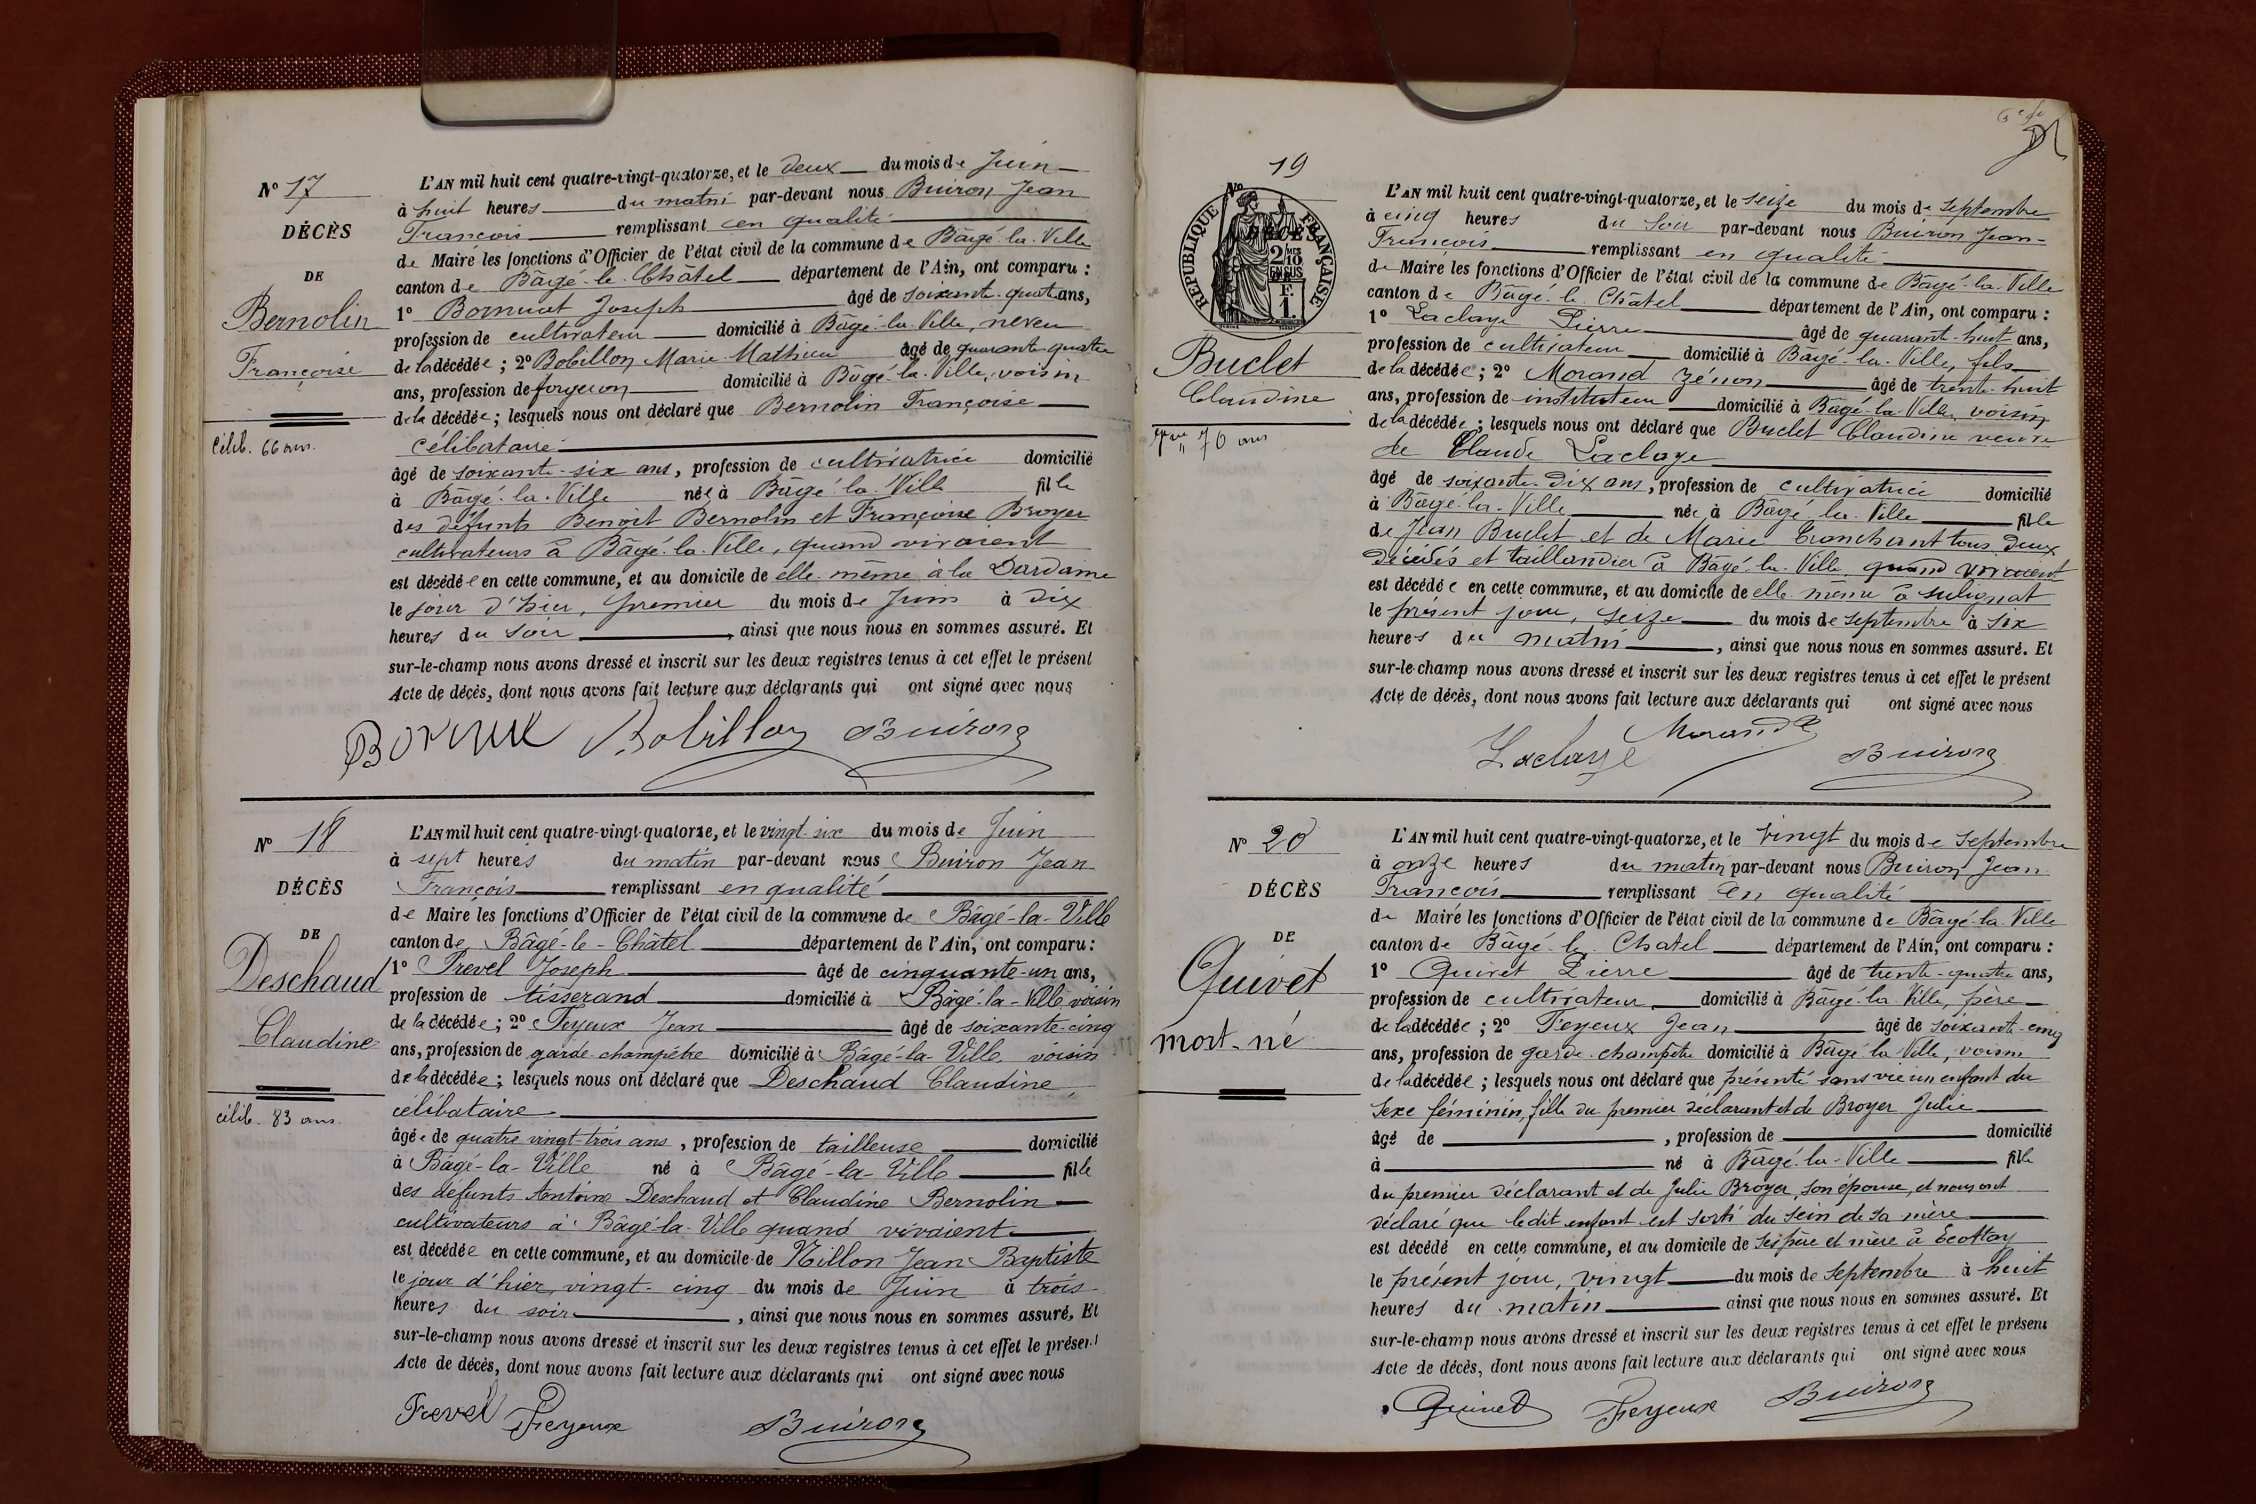 N° 17
DÉCÈS
DE
Bernolin
Françoise
célib. 66 ans.
L'AN mil huit cent quatre-vingt-quatorze, et le deux du mois de Juin
à huit heures du matin par-devant nous Buiron Jean
François remplissant en qualité
de Maire les fonctions d'Officier de l'état civil de la commune de Bâgé-la-Ville
canton de Bâgé-le-Châtel département de l'Ain, ont comparu :
1° Joseph âgé de soixante-quatre ans,
profession de cultivateur domicilié à Bâgé-la-Ville, neveu
de la décédée ; 2° Bobillon Marie Mathieu âgé de quarante-quatre
ans, profession de forgeron domicilié à Bâgé-la-Ville, voisin
de la décédée ; lesquels nous ont déclaré que Bernolin Françoise
célibataire
âgé de soixante-six ans, profession de cultivatrice domicilié
à Bâgé-la-Ville née à Bâgé-la-Ville fille
des défunts Benoit Bernolin et Françoise Broyer
cultivateurs à Bâgé-la-Ville, quand vivaient
est décédée en cette commune, et au domicile de elle-même à la Dardame
le jour d'hier, premier du mois de Juin à dix
heures du soir, ainsi que nous nous en sommes assuré. Et
sur-le-champ nous avons dressé et inscrit sur les deux registres tenus à cet effet le présent
Acte de décès, dont nous avons fait lecture aux déclarants qui ont signé avec nous
Bobillon Buiron
N° 18
DÉCÈS
DE
Deschaud
Claudine
célib. 83 ans.
L'AN mil huit cent quatre-vingt-quatorze, et le vingt-six du mois de Juin
à sept heures du matin par-devant nous Buiron Jean
François remplissant en qualité
de Maire les fonctions d'Officier de l'état civil de la commune de Bâgé-la-Ville
canton de Bâgé-le-Châtel département de l'Ain, ont comparu :
1° Prevel Joseph âgé de cinquante-un ans,
profession de tisserand domicilié à Bâgé-la-Ville voisin
de la décédée ; 2° Feyeux Jean âgé de soixante-cinq
ans, profession de garde-champêtre domicilié à Bâgé-la-Ville voisin
de la décédée ; lesquels nous ont déclaré que Deschaud Claudine
célibataire
âgée de quatre-vingt-trois ans, profession de tailleuse domicilié
à Bâgé-la-Ville né à Bâgé-la-Ville fille
des défunts Antoine Deschaud et Claudine Bernolin
cultivateurs à Bâgé-la-Ville quand vivaient
est décédée en cette commune, et au domicile de Nillon Jean Baptiste
le jour d'hier, vingt-cinq du mois de Juin à trois
heures du soir, ainsi que nous nous en sommes assuré. Et
sur-le-champ nous avons dressé et inscrit sur les deux registres tenus à cet effet le présent
Acte de décès, dont nous avons fait lecture aux déclarants qui ont signé avec nous
Feyeux Buiron
19
N°
RÉPUBLIQUE FRANÇAISE
DÉCÈS
2/10 EN SUS
F. 1.
Buclet
Claudine
70 ans
L'AN mil huit cent quatre-vingt-quatorze, et le seize du mois de Septembre
à cinq heures du soir par-devant nous Buiron Jean-
François remplissant en qualité
de Maire les fonctions d'Officier de l'état civil de la commune de Bâgé-la-Ville
canton de Bâgé-le-Châtel département de l'Ain, ont comparu :
1° Laclaye Pierre âgé de quarante-huit ans,
profession de cultivateur domicilié à Bâgé-la-Ville, fils
de la décédée ; 2° Morand Zénon âgé de trente-huit
ans, profession de instituteur domicilié à Bâgé-la-Ville, voisin
de la décédée ; lesquels nous ont déclaré que Buclet Claudine veuve
de Claude Laclaye
âgé de soixante-dix ans, profession de cultivatrice domicilié
à Bâgé-la-Ville née à Bâgé-la-Ville fille
de Jean Buclet et de Marie Tranchant tous deux
décédés et taillandier à Bâgé-la-Ville quand vivaient
est décédée en cette commune, et au domicile de elle-même à Sulignat
le présent jour, seize du mois de Septembre à six
heures du matin, ainsi que nous nous en sommes assuré. Et
sur-le-champ nous avons dressé et inscrit sur les deux registres tenus à cet effet le présent
Acte de décès, dont nous avons fait lecture aux déclarants qui ont signé avec nous
Laclaye Morand Buiron
N° 20
DÉCÈS
DE
Quivet
mort-né
L'AN mil huit cent quatre-vingt-quatorze, et le vingt du mois de Septembre
à onze heures du matin par-devant nous Buiron Jean
François remplissant en qualité
de Maire les fonctions d'Officier de l'état civil de la commune de Bâgé-la-Ville
canton de Bâgé-le-Chatel département de l'Ain, ont comparu :
1° Quivet Pierre âgé de trente-quatre ans,
profession de cultivateur domicilié à Bâgé-la-Ville, père
de la décédée ; 2° Feyeux Jean âgé de soixante-cinq
ans, profession de garde-champêtre domicilié à Bâgé-la-Ville, voisin
de la décédée ; lesquels nous ont déclaré que présenté sans vie un enfant du
sexe féminin, fille du premier déclarant et de Broyer Julie
âgé de , profession de domicilié
à né à Bâgé-la-Ville fille
du premier déclarant et de Julie Broyer, son épouse, et nous ont
déclaré que ledit enfant est sorti du sein de sa mère
est décédé en cette commune, et au domicile de ses père et mère à Ecottay
le présent jour, vingt du mois de Septembre à huit
heures du matin ainsi que nous nous en sommes assuré. Et
sur-le-champ nous avons dressé et inscrit sur les deux registres tenus à cet effet le présent
Acte de décès, dont nous avons fait lecture aux déclarants qui ont signé avec nous
Quivet Feyeux Buiron